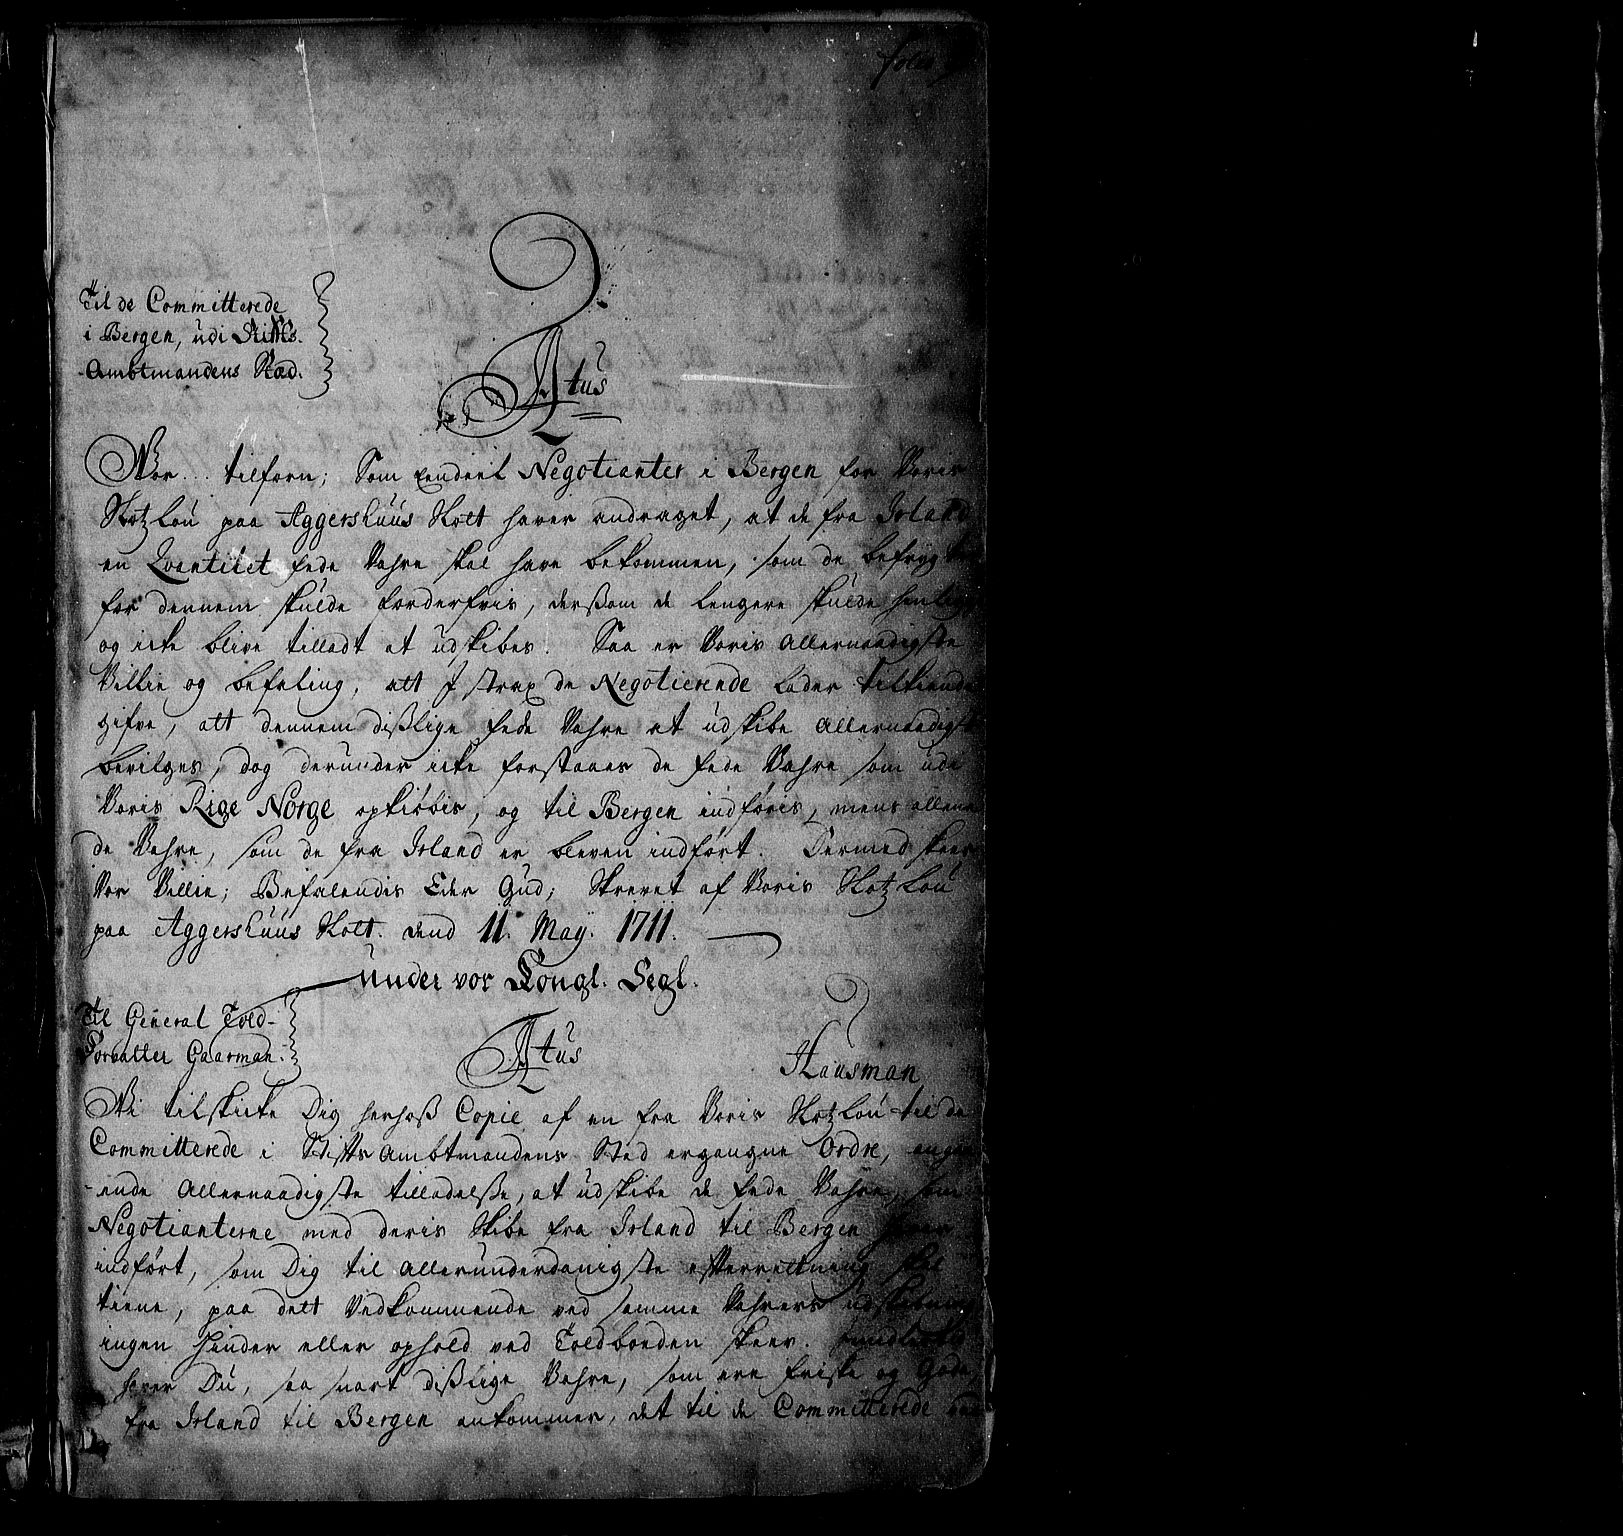 folio
Til de Committerede
i Bergen, udi Stifts-
Ambtmandens Stæd.
Atus
Vor... tilforn; Som endeel Negotianter i Bergen for Voris
SlotzLou paa Aggershuus Slott haver andraget, at de fra Irland
en Qvantitet fede Vahre skal have bekommen, som de befrygter
for dennem skulde forderfvis, dersom de lengere skulde henligge
og icke blive tilladt at udskibes. Saa er Voris allernaadigste
Villie og befaling, att I strax de Negotierende lader tilkiende
gifve, att dennem dißlige fede Vahre at udskibe allernaadigst
bevilges, dog derunder icke forstaaes de fede Vahre som udi
Voris Rige Norge opkiøbis, og til Bergen indføris, mens allene
de Vahre, som de fra Irland er bleven indført. Dermed skeer
Vor Villie; Befalendis Eder Gud; Skrevet af Voris SlotzLou
paa Aggershuus Slott. dend 11. May. 1711.
Under vor Kongl. Segl.
Til General Told-
Forvalter Gaarman.
Atus
Hausman
Vi tilskicke Dig herhoß Copie af en fra Voris SlotzLou til de
Committerede i StiftsAmbtmandens Sted ergangne Ordre, angaa-
ende Allernaadigste tilladelße, at udskibe de fede Vahre, som
Negotianterne med deris Skibe fra Irland til Bergen haver
indført, som Dig til allerunderdanigste efterrettning skal
tiene, paa dett Vedkommende ved samme Vahrers udskibning
ingen hinder eller ophold ved Toldboeden skeer.
haver Du, saa snart dißlige Vahre, som ere friske og Gode,
fra Irland til Bergen ankommer, det til de Committerede